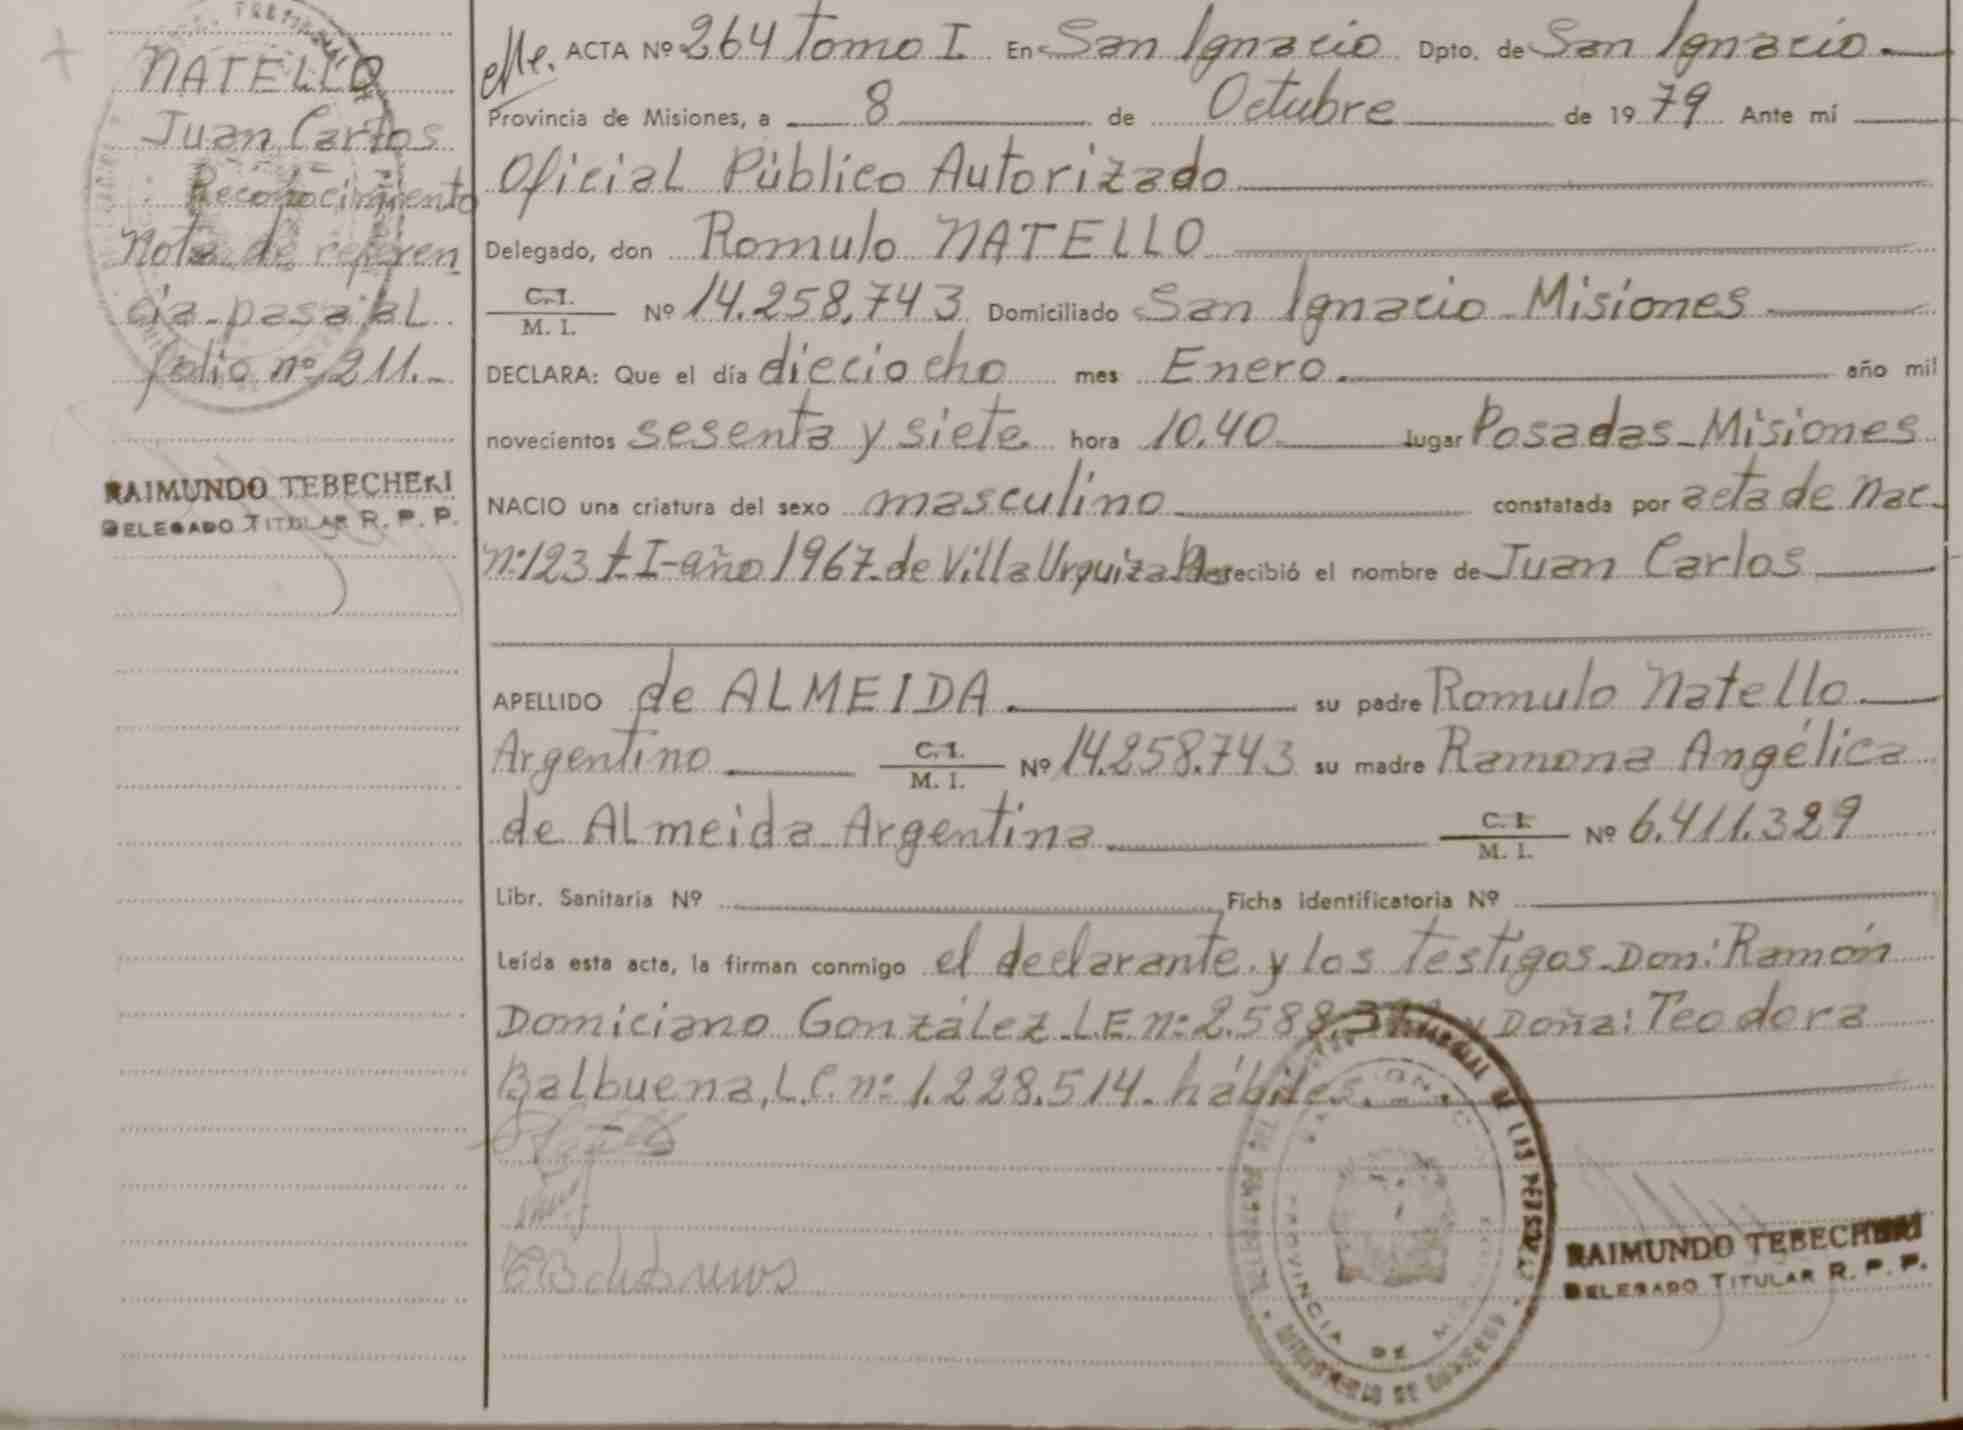 NATELLO
Juan Carlos
Reconocimiento
Nota de referen
cia pasa al
folio nº 211.-
RAIMUNDO TEBECHERI
DELEGADO TITULAR R. P. P.
ACTA Nº 264 tomo I En San Ignacio Dpto. de San Ignacio
Provincia de Misiones, a 8 de Octubre de 1979 Ante mí
Oficial Público Autorizado
Delegado, don Romulo NATELLO
C. I.
M. I.
Nº 14.258.743 Domiciliado San Ignacio Misiones
DECLARA: Que el día dieciocho mes Enero año mil
novecientos sesenta y siete hora 10.40 lugar Posadas - Misiones
NACIO una criatura del sexo masculino constatada por acta de Nac.
nº 123 t. I - año 1967 - de Villa Urquiza recibió el nombre de Juan Carlos
APELLIDO de ALMEIDA su padre Romulo Natello
Argentino
C. I.
M. I.
Nº 14.258.743 su madre Ramona Angélica
de Almeida Argentina
C. I.
M. I.
Nº 6.411.329
Libr. Sanitaria Nº Ficha identificatoria Nº
Leída esta acta, la firman conmigo el declarante y los testigos Don: Ramón
Domiciano González L.E. nº 2.588. y Doña: Teodora
Balbuena, L.C. nº 1.228.514. hábiles.
PROVINCIA DE
DE LAS PERSONAS
MINISTERIO DE GOBIERNO
RAIMUNDO TEBECHERI
DELEGADO TITULAR R. P. P.